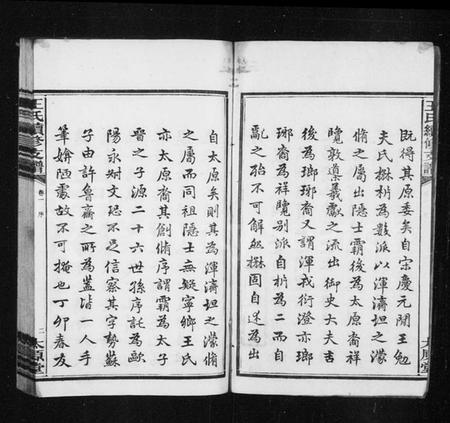 既得其原委矣自宗慶元閒王勉
夫氏櫥析為數派以渾濟坦之濛
脩之屬出隱士霸後為太原裔祥
覽敦導羲獻之流出御史大夫吉
後為瑯琊裔又謂渾戎衍澄亦瑯
琊裔為祥覽別派自析為二而自
亂之殆不可解然櫥固自迷為出
自太原矣則其為渾濟坦之濛脩
之屬而同祖隱士無疑寧鄉王氏
亦太原裔其創脩序謂霸為太子
晉之子源二十六世孫序託為歐
陽永叔文恐不足信察其字勢蘇
子由許魯齋之所為蓋諧一人手
筆媕陋處故不可掩也丁卯春友
王氏續修支譜
卷一 序
二
太原堂
王氏續修支譜
太原堂